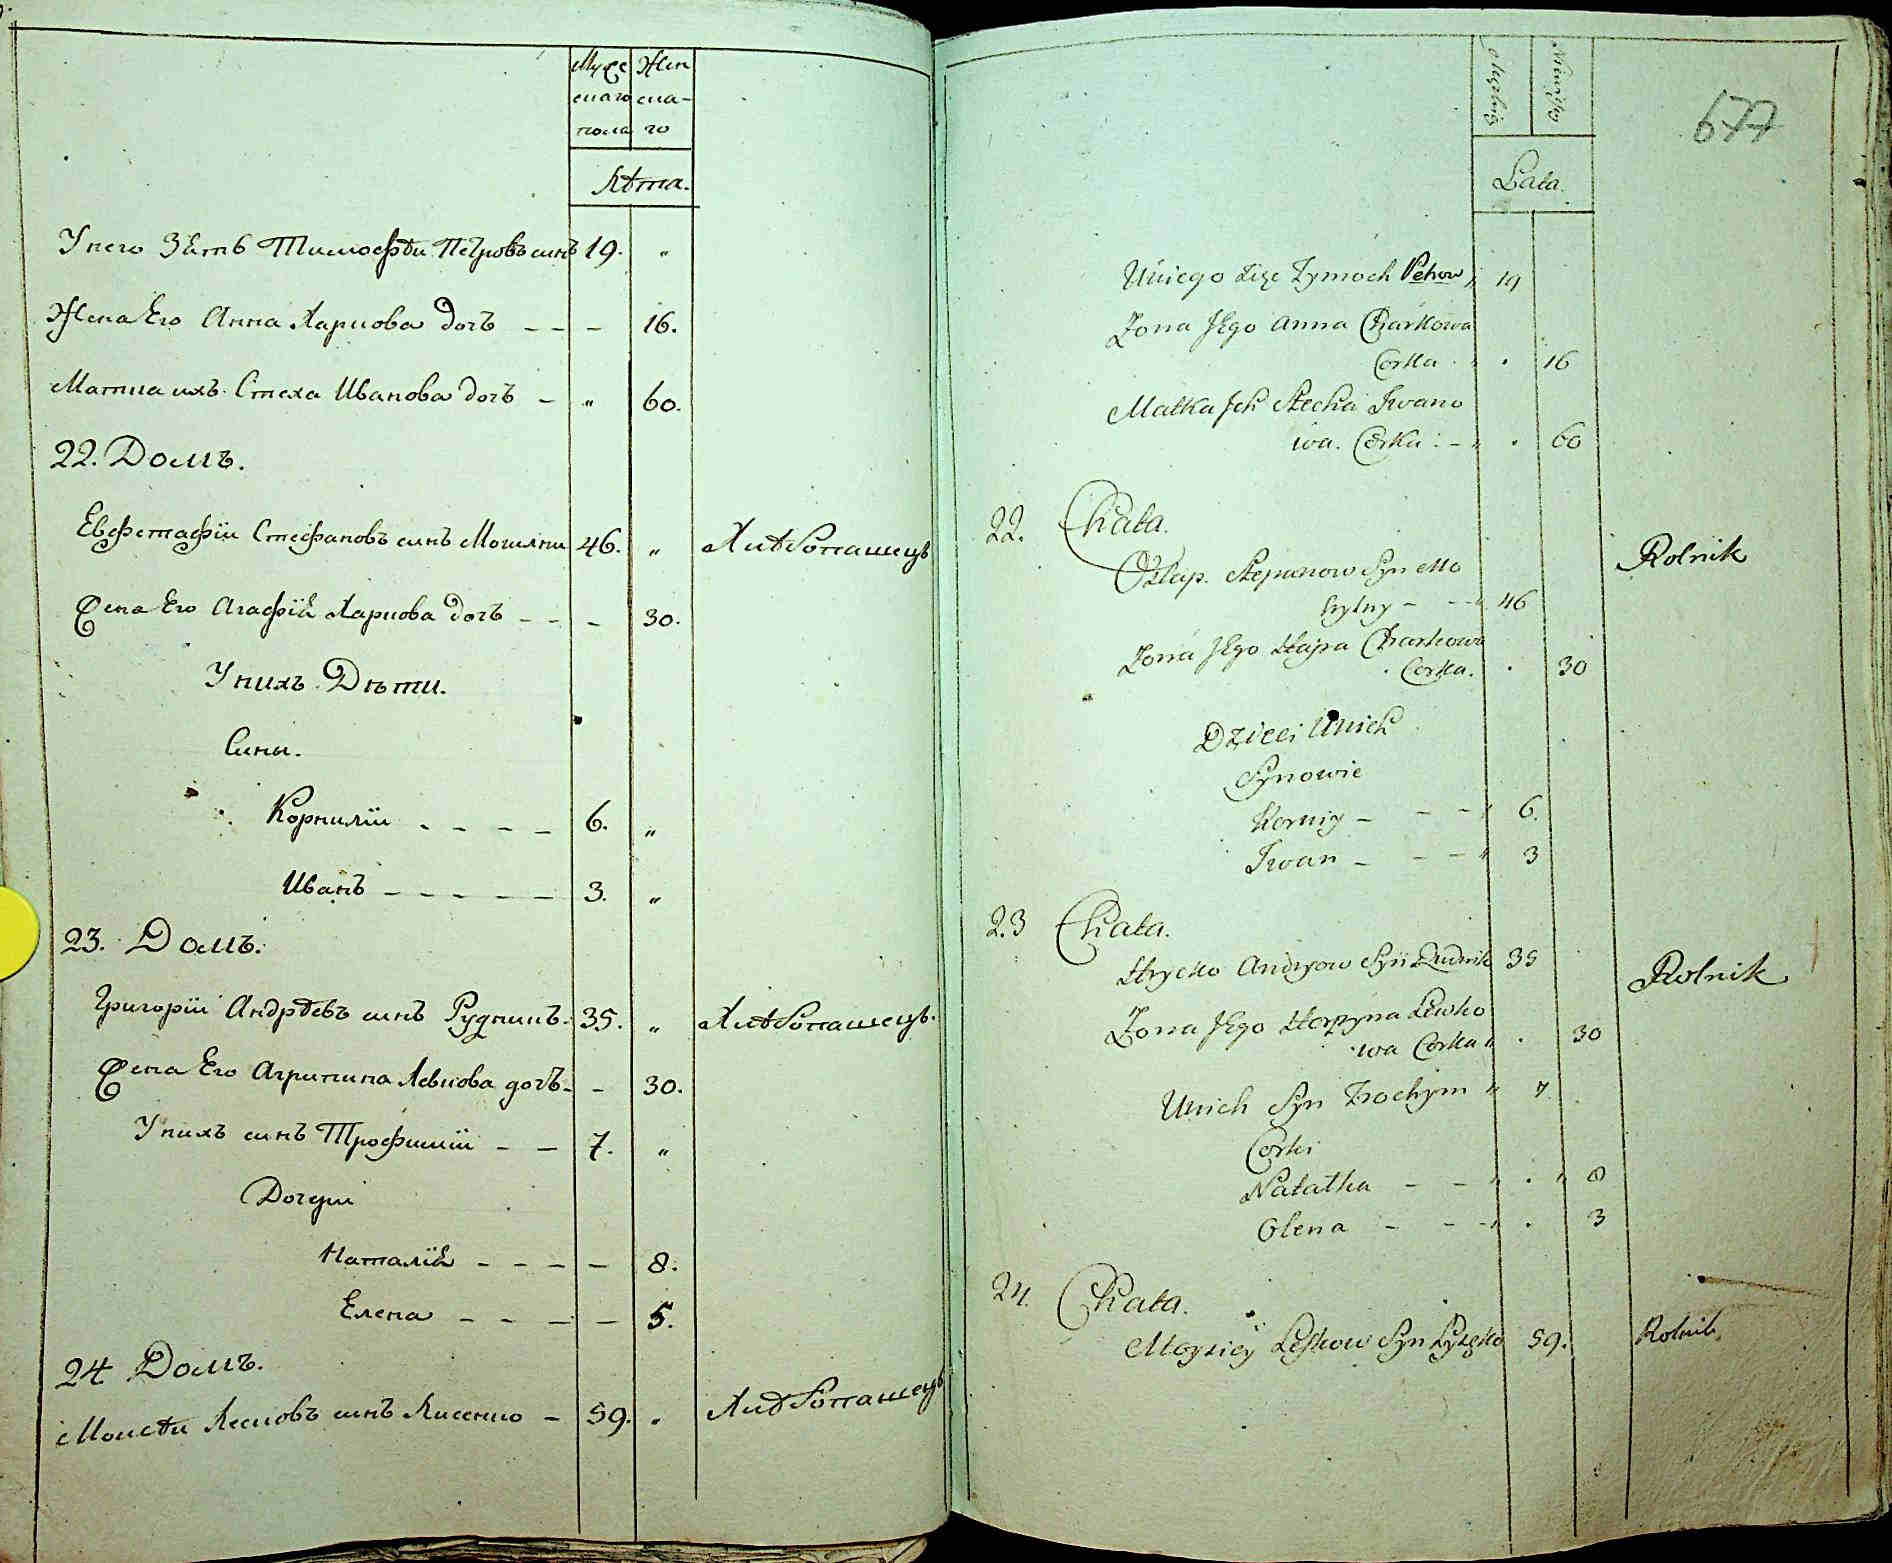 Мужескаго пола
Женскаго
Лѣта.
Унего Зять Тимофѣй Петровъ синъ 19. „
Жена Его Анна Харкова дочъ – – – 16.
Матка ихъ Стеха Иванова дочъ – „ 60.
22. Домъ.
Евфстафій Стефановъ синъ Могилни 46. „ Хлѣбопашецъ
Жена Его Агафія Харкова дочъ – – – 30.
Унихъ Дѣти.
Сини.
Корнилій – – – – 6. „
Иванъ – – – – – 3. „
23. Домъ.
Григорій Андрѣевъ синъ Рудникъ. 35. „ Хлѣбопашецъ.
Жена Его Агрипина Левкова дочъ – – 30.
Унихъ синъ Трофимій – – 7. „
Дочери
Наталія – – – – 8.
Елена – – – – – 5.
24 Домъ.
Моисѣй Лесковъ синъ Лисенко – 59. „ Хлѣбопашецъ
677
Lata.
Uniego Zięc Tymoch Petrow „ 19
Zona Jego Anna Charkowa
Corka „ . 16
Matka Jch Stecha Iwano
wa. Corka . – „ . 60
22. Chata.
Ostap Stepanow Syn Mo
hylny – – „ 46 Rolnik
Zona Jego Hapa Charkowa
Corka. . 30
Dzieci Unich
Synowie
Korniy – – – „ 6.
Iwan – – – „ 3
23 Chata.
Hrycko Andryow Syn Rudnik 35 Rolnik
Zona Jego Horpyna Lewko
wa Corka „ . 30
Unich Syn Trochym „ 7
Corki
Natałka – – „ . „ 8
Olena – – – „ . 3
24. Chata.
Moysiey Leskow Syn Łysęko 59. Rolnik